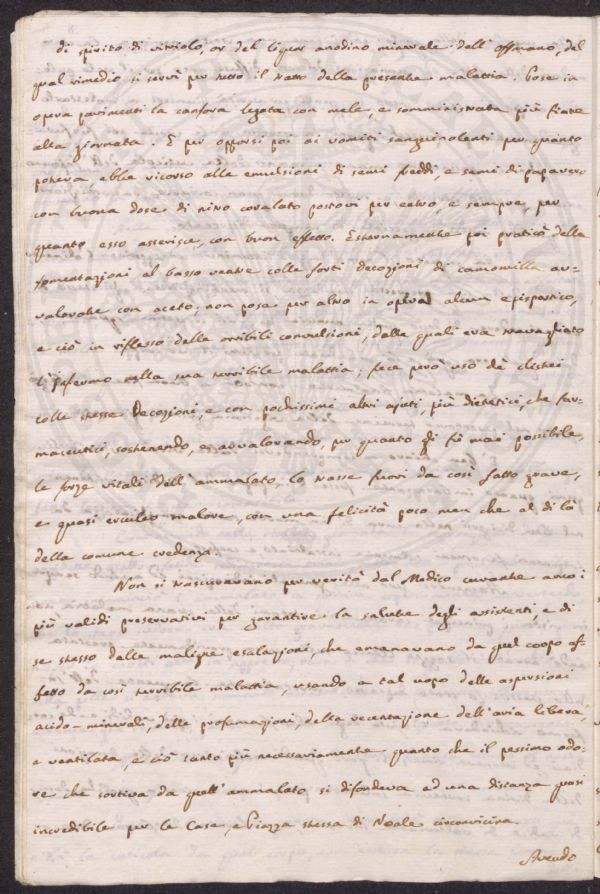 di spirito di vitriolo, or del liquor anodino minerale dell' Offmano, del
qual rimedio si servì per tutto il tratto della presente malattia. Pose in
opera parimenti la canfora legata con mele, e somministrata più fiate
alla giornata. E per opporsi poi ai vomiti sanguinolenti per quanto
poteva, ebbe ricorso alle emulsioni di semi freddi, e semi di papavero
con buona dose di nitro postovi per entro, e sempre, per
quanto esso asserisce, con buon effetto. Esternamente poi praticò delle
fomentazioni al basso ventre colle forti decozioni di camomilla av-
valorate con aceto; non pose per altro in opera alcun epispastico,
e ciò in riflesso delle orribili convulsioni, dalle quali era travagliato
l'infermo nella sua terribile malattia; fece però uso de clisteri
colle stesse Decozioni, e con pochissimi altri ajuti, più dietetici, che far-
maceutici, sostenendo, et avvalorando, per quanto gli fù mai possibile,
le forze vitali dell' ammalato, lo trasse fuori da così fatto grave,
e quasi erculeo malore, con una felicità poco men che al di là
della comune credenza.
Non si trascuravano per verità dal Medico curante anco i
più validi preservativi per garantire la salute degli assistenti, e di
se stesso dalle maligne esalazioni, che emanavano da quel corpo af-
fetto da così terribile malattia, usando a tal uopo delle aspersioni
acido-minerali, delle profumazioni, della recentazione dell' aria libera,
e ventilata, e ciò tanto più necessariamente quanto che il pessimo odo-
re che sortiva da quell' ammalato si difondeva ad una distanza quasi
incredibile per le Case, e Piazza stessa di Noale circonvicina.
Avendo